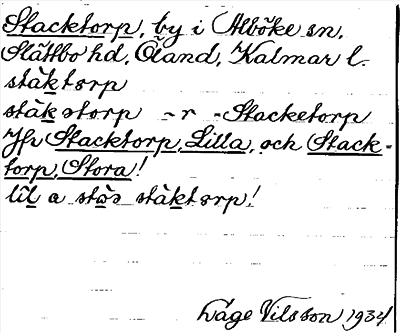 Stacktorp, by i Alböke sn,
Slättbo hd, Öland, Kalmar l.
stàktɔrp
stàkətorp -r -Stacketorp
Jfr Stacktorp, Lilla, och Stack-
torp, Stora!
lìl a stòs stàktɔrp!
Låge Nilsson 1934